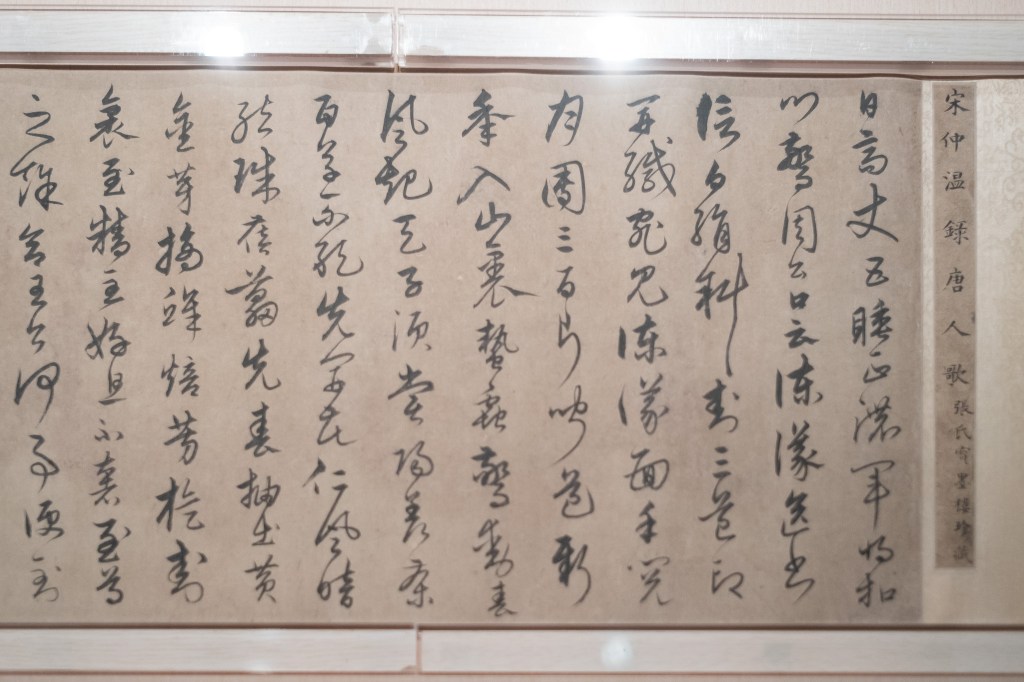 宋仲温録唐人歌 張氏寶墨樓珍藏
日高丈五睡正濃軍將扣
門驚周公口云諫議送書
信白絹斜封三道印
開緘宛見諫議面手閱
月團三百片聞道新
年入山裏蟄蟲驚動春
風起天子須嘗陽羨茶
百草不敢先開花仁風暗
結珠蓓蕾先春抽出黄
金芽摘鮮焙芳旋封
裹至精至好且不奢至尊
之餘合王公何事便到